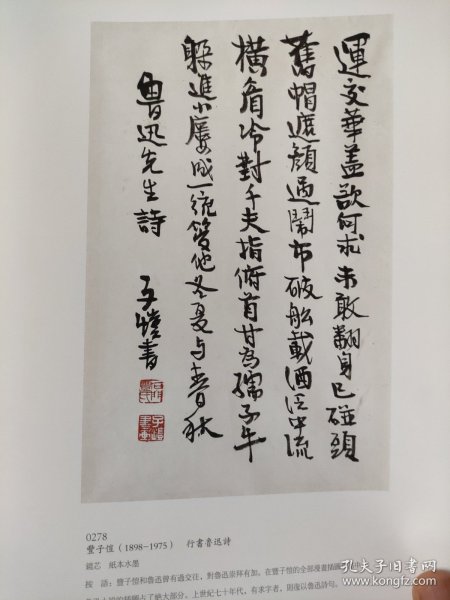 運交華蓋欲何求未敢翻身已碰頭
舊帽遮顏過鬧市破船載酒泛中流
橫眉冷對千夫指俯首甘為孺子牛
躲進小樓成一統管他冬夏与春秋
魯迅先生詩 子愷書
0278
豐子愷（1898-1975） 行書魯迅詩
鏡芯 紙本水墨
按 語：豐子愷和魯迅曾有過交往，對魯迅崇拜有加。在豐子愷的全部漫畫插圖
插圖占了絕大部分。上世紀七十年代，有求字者，則復以魯迅詩句。
孔夫子旧书网